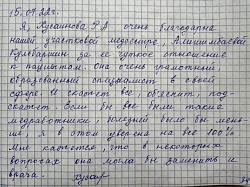 15.09.22г.
Я, Кусаинова Р.А очень благодарна
нашей участковой медсестре,
за ее чуткое отношение
к пациентам. Она очень грамотный
образованный специалист в своей
сфере. И скажет все, объяснит, под-
скажет. Если бы все были такие
медработники, болезней было бы мень-
ше. Я в этом уверена на все 100%
Мне кажется, что в некоторых
вопросах она могла бы заменить и
врача.